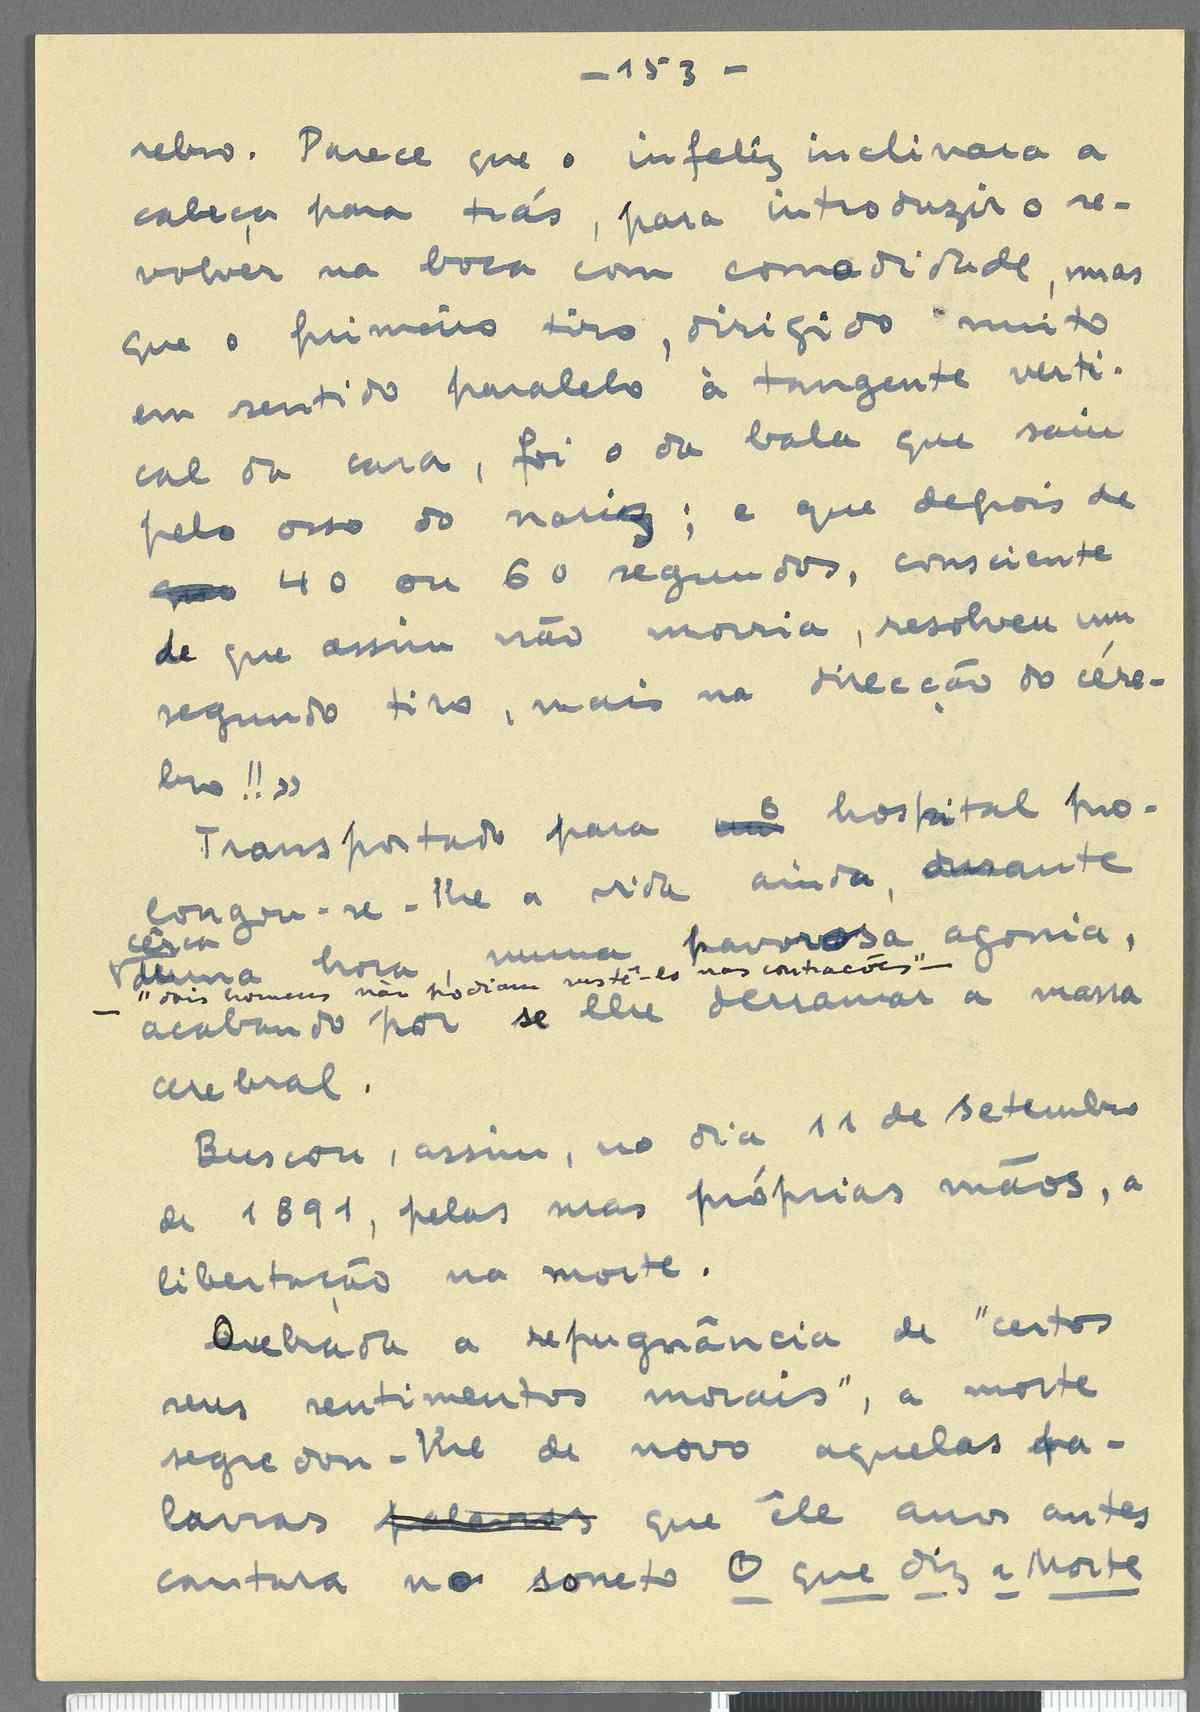 - 153 -
rebro. Parece que o infelíz inclinara a
cabeça para trás, para introduzir o re-
volver na boca com comodidade, mas
que o primeiro tiro, dirigido muito
em sentido paralelo à tangente verti-
cal da cara, foi o da bala que saiu
pelo osso do nariz; e que depois de
40 ou 60 segundos, consciente
de que assim não morria, resolveu um
segundo tiro, mais na direcção do cére-
bro!!»
Transportado para o hospital pro-
longou-se-lhe a vida ainda, durante
cêrca
duma hora, numa pavorosa agonia,
– "dois homens não podiam sustê-lo nas contracões" –
acabando por se lhe derramar a massa
cerebral.
Buscou, assim, no dia 11 de Setembro
de 1891, pelas suas próprias mãos, a
libertação na morte.
Quebrada a repugnância de "certos
seus sentimentos morais", a morte
segredou-lhe de novo aquelas pa-
lavras palavras que êle anos antes
cantara no soneto O que diz a Morte